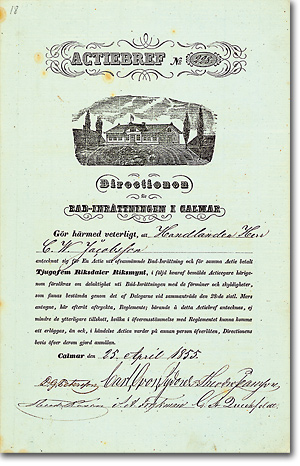 18
ACTIEBREF №
Directionen
för
BAD-INRÄTTNINGEN I CALMAR
Gör härmed veterligt, at Handlanden Herr
C. W. Jacobsson
antecknat sig för En Actie uti ofvannämnde Bad-Inrättning och för samma Actie betalt
Tjugofem Riksdaler Riksmynt, i följd hvaraf bemälde Actieegare härige-
nom försäkras om delaktighet uti Bad-Inrättningen med de förmåner och skyldigheter,
som finnas bestämda genom det af Delegarne vid sammanträde den 28:de sistl. Mars
antagne, här efteråt aftryckte, Reglemente; hörande å detta Actiebref antecknas, ej
mindre de ytterligare tillskott, hvilka i öfverensstämmelse med Reglementet kunna komma
att erläggas, än ock, i händelse Actien varder på annan person öfverlåten, Directionens
bevis öfver derom gjord anmälan.
Calmar den 25 April 1855.